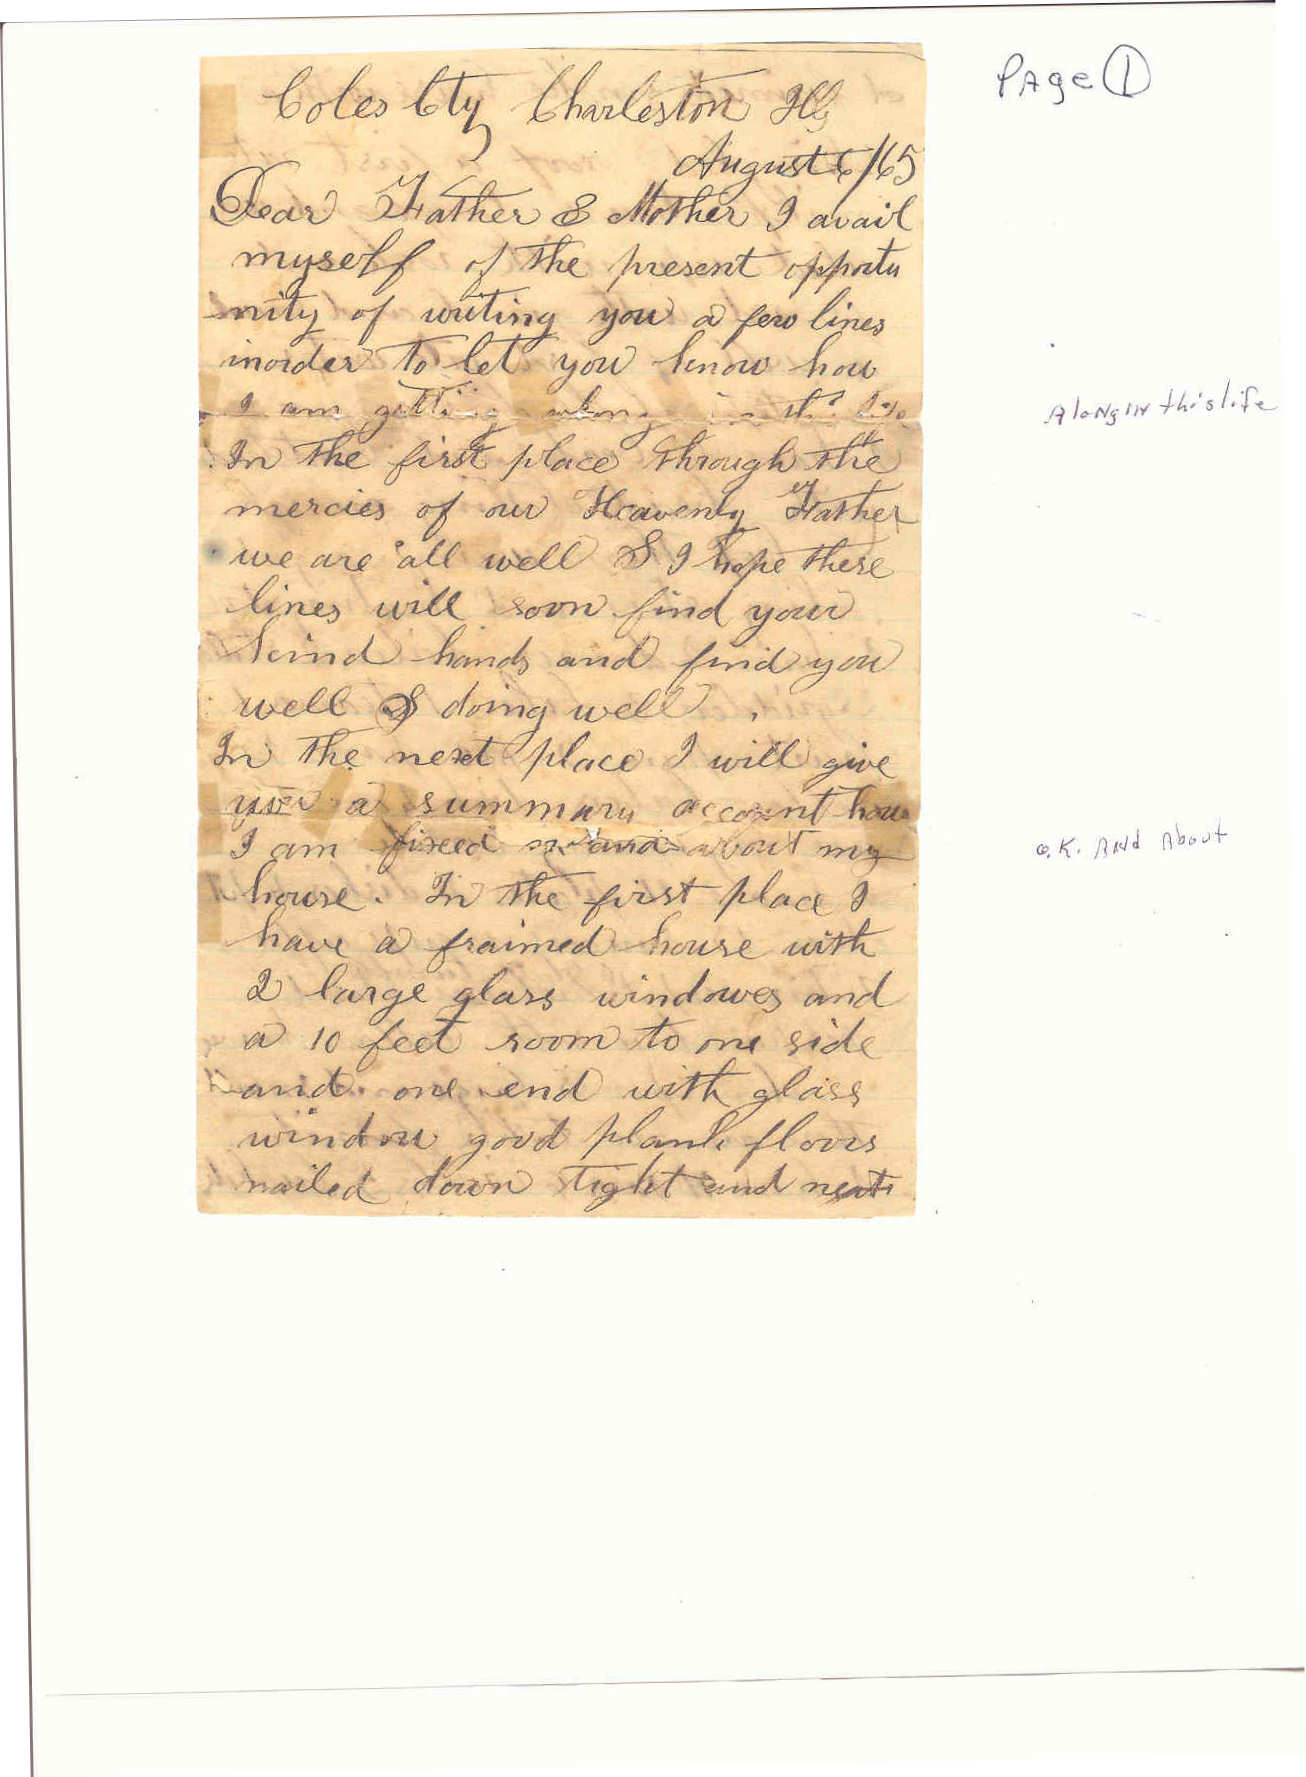 Page 1
Coles Cty Charleston Ill
August 6/65
Dear Father & Mother I avail
myself of the present opportu
nity of writing you a few lines
inorder to let you know how
I am getting along in this life
Along in this life
In the first place through the
mercies of our Heavenly Father
we are all well & I hope these
lines will soon find your
kind hands and find you
well & doing well.
In the next place I will give
you a summary account how
I am fixed and about my
O.K. And About
house. In the first place I
have a fraimed house with
2 large glass windowes and
a 10 feet room to one side
and one end with glass
window good plank floors
nailed down tight and neat